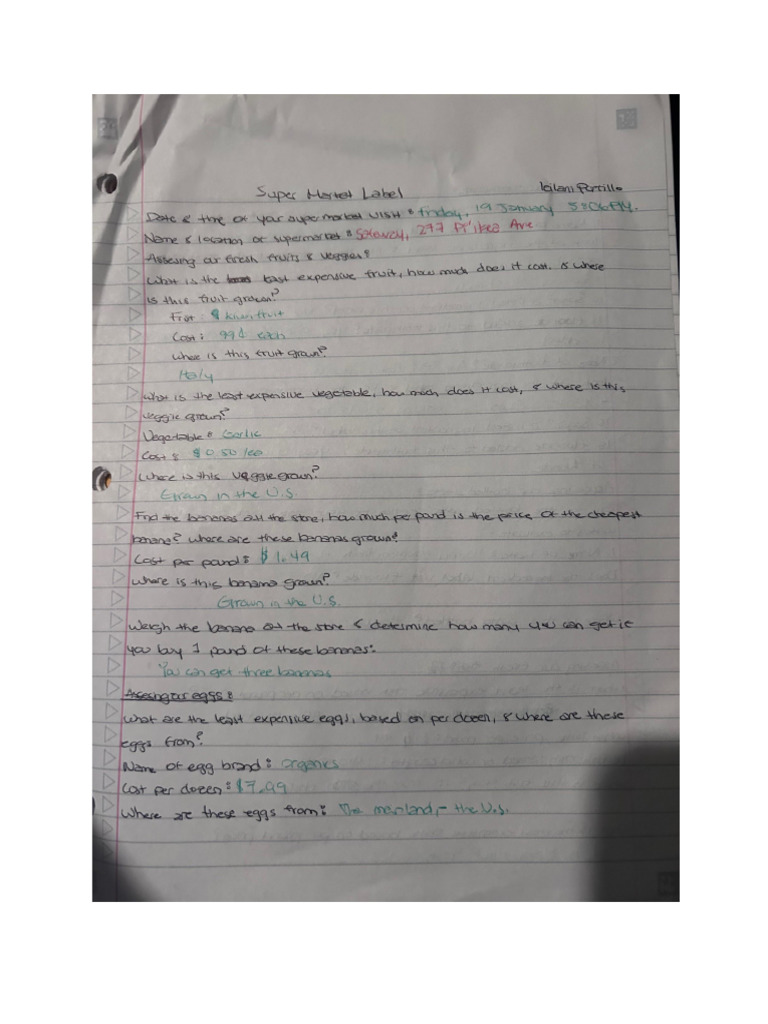 Super Market Label
Leilani Portillo
Date & time of your supermarket visit: friday, 19 January 5:06 PM.
Name & location of supermarket: Safeway, 277 Pi'ikea Ave
Assesing our fresh fruits & veggies:
What is the least expensive fruit, how much does it cost, & where
is this fruit grown?
Fruit: kiwifruit
Cost: 99¢ each
Where is this fruit grown?
Italy
What is the least expensive vegetable, how much does it cost, & where is this
veggie grown?
Vegetable: Garlic
Cost: $0.50/ea
Where is this veggie grown?
Grown in the U.S.
Find the bananas at the store, how much per pound is the price of the cheapest
banana? Where are these bananas grown?
Cost per pound: $1.49
Where is this banana grown?
Grown in the U.S.
Weigh the banana at the store & determine how many you can get if
you buy 1 pound of these bananas:
You can get three bananas
Assesing our eggs:
What are the least expensive eggs, based on per dozen, & where are these
eggs from?
Name of egg brand: Organics
Cost per dozen: $7.99
Where are these eggs from: The mainland, - the U.S.